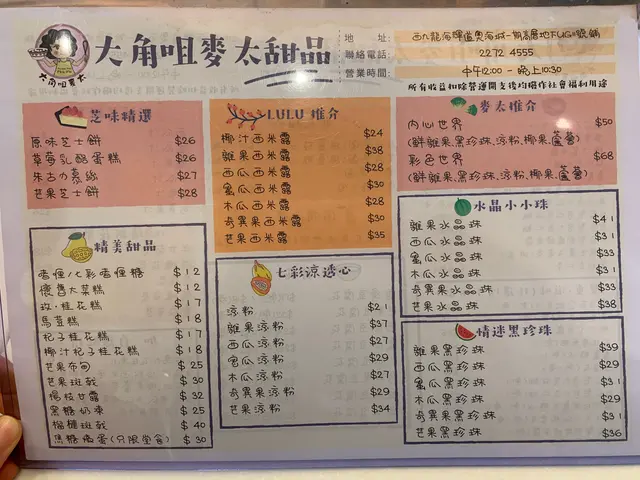 大角咀麥太
大角咀麥太甜品
地　址: 西九龍海輝道奧海城一期高層地下UG11號鋪
聯絡電話: 2272 4555
營業時間: 中午12:00 - 晚上10:30
所有收益扣除營運開支後均撥作社會福利用途
芝味精選
原味芝士餅 $26
草莓乳酪蛋糕 $26
朱古力慕絲 $27
芒果芝士餅 $28
精美甜品
啫喱/七彩啫喱糖 $12
懷舊大菜糕 $12
玫瑰桂花糕 $17
馬荳糕 $18
杞子桂花糕 $17
椰汁杞子桂花糕 $18
芒果布甸 $25
芒果班戟 $30
楊枝甘露 $32
黑糖奶凍 $25
榴槤班戟 $40
焦糖燉蛋(只限堂食) $30
LULU 推介
椰汁西米露 $24
雜果西米露 $38
西瓜西米露 $28
蜜瓜西米露 $30
木瓜西米露 $28
奇異果西米露 $30
芒果西米露 $35
七彩涼透心
涼粉 $21
雜果涼粉 $37
西瓜涼粉 $27
蜜瓜涼粉 $29
木瓜涼粉 $27
奇異果涼粉 $29
芒果涼粉 $34
麥太推介
內心世界 $50
(鮮雜果,黑珍珠,涼粉,椰果,蘆薈)
彩色世界 $68
(鮮雜果,黑珍珠,涼粉,椰果,蘆薈)
水晶小小珠
雜果水晶珠 $41
西瓜水晶珠 $31
蜜瓜水晶珠 $33
木瓜水晶珠 $31
奇異果水晶珠 $33
芒果水晶珠 $38
情迷黑珍珠
雜果黑珍珠 $39
西瓜黑珍珠 $29
蜜瓜黑珍珠 $31
木瓜黑珍珠 $29
奇異果黑珍珠 $31
芒果黑珍珠 $36